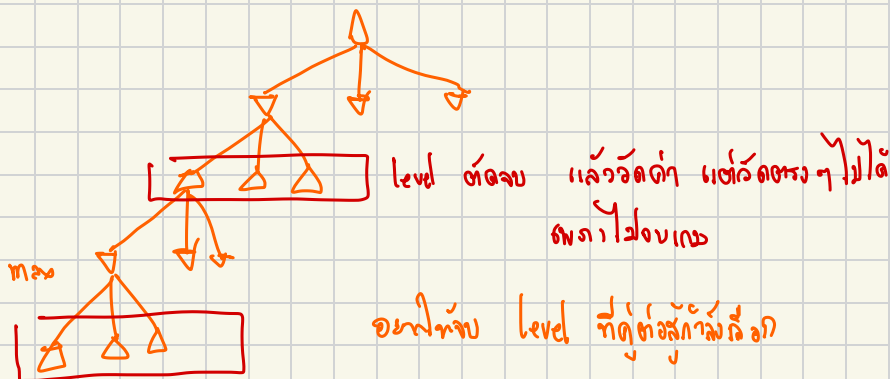 level ตัดจบ แล้ววัดค่า แต่วัดตรงๆไม่ได้
เพราะไม่จบเกม
max
อย่าให้จบ level ที่คู่ต่อสู้กำลังเลือก